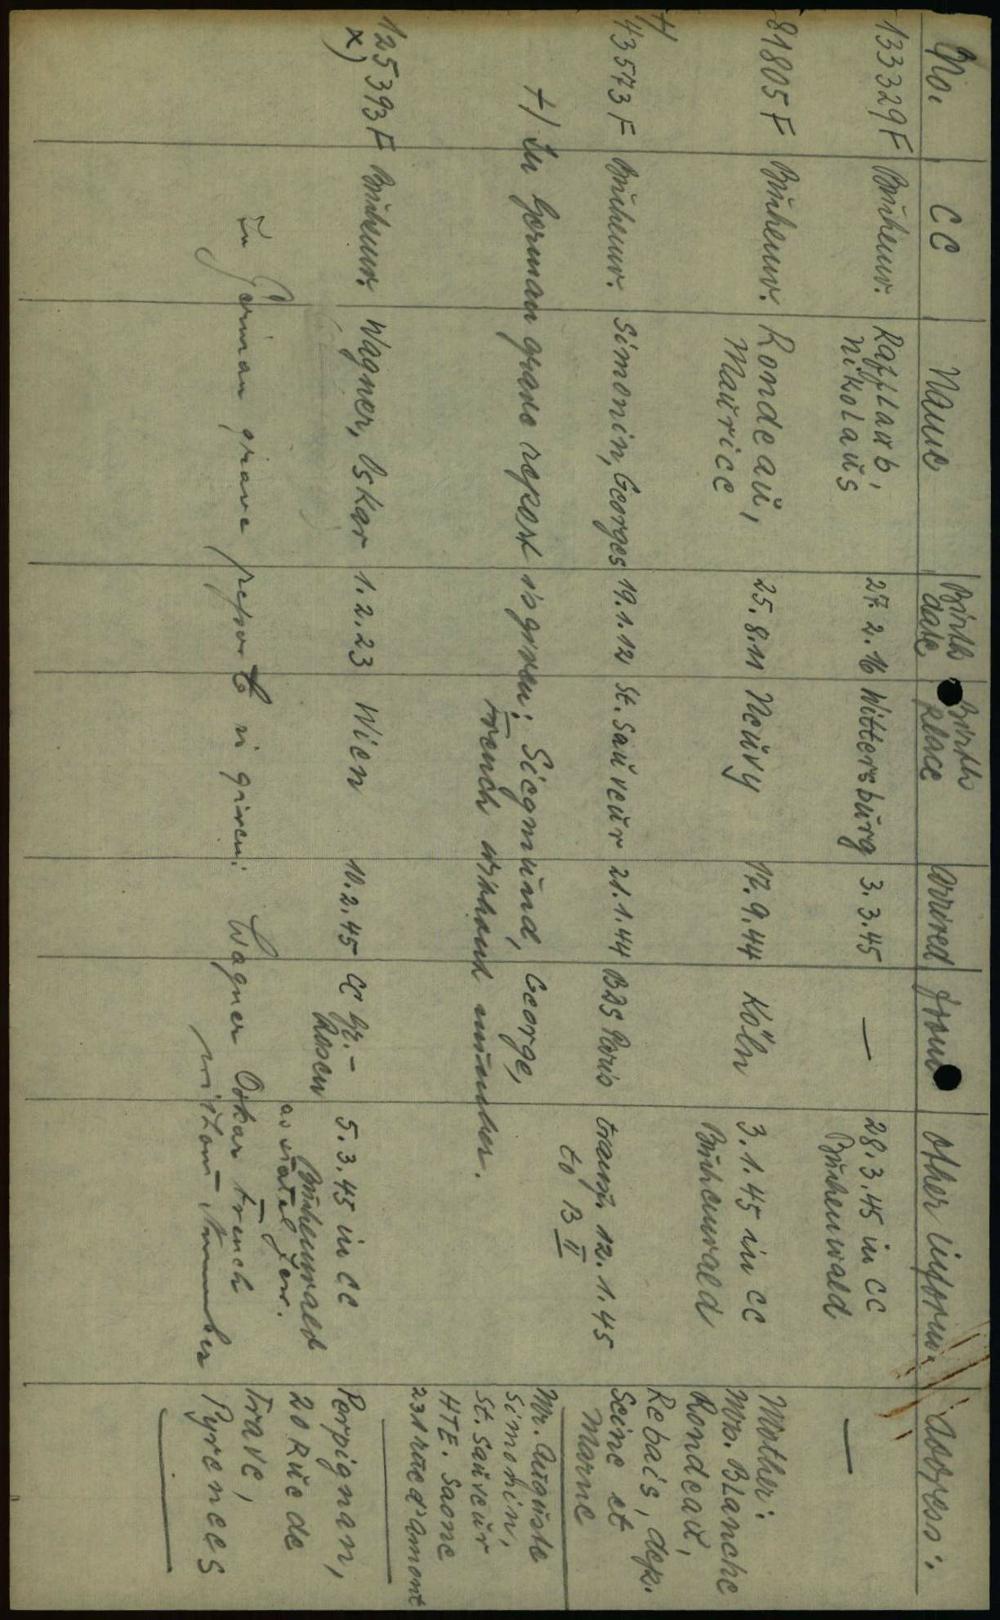 No. CC Name Birth date Birth place arrived from other inform. Address:
133329F Buchenw. Rafflaub, Nikolaus 27.2.16 Wittersburg 3.3.45 — 28.3.45 in CC Buchenwald —
81805F Buchenw. Rondeau, Maurice 25.8.11 Neuvy 17.9.44 Köln 3.1.45 in CC Buchenwald Mother: Mrs. Blanche Rondeau, Rebais, dep. Seine et Marne
+) 43573F Buchenw. Simonin, Georges 19.1.12 St. Sauveur 21.1.44 BdS Paris transf. 12.1.45 to B II Mr. Auguste Simonin, St. Sauveur HTE. Saone 231 rue d'amont
+) In German grave report is given: Siegmund, George,
French without number.
125393F x) Buchenw. Wagner, Oskar 1.2.23 Wien 10.2.45 CC Gr.-Rosen 5.3.45 in CC Buchenwald Perpignan, 20 Rue de Trave, Pyrenees
In German grave report is given: Wagner Oskar French
without number